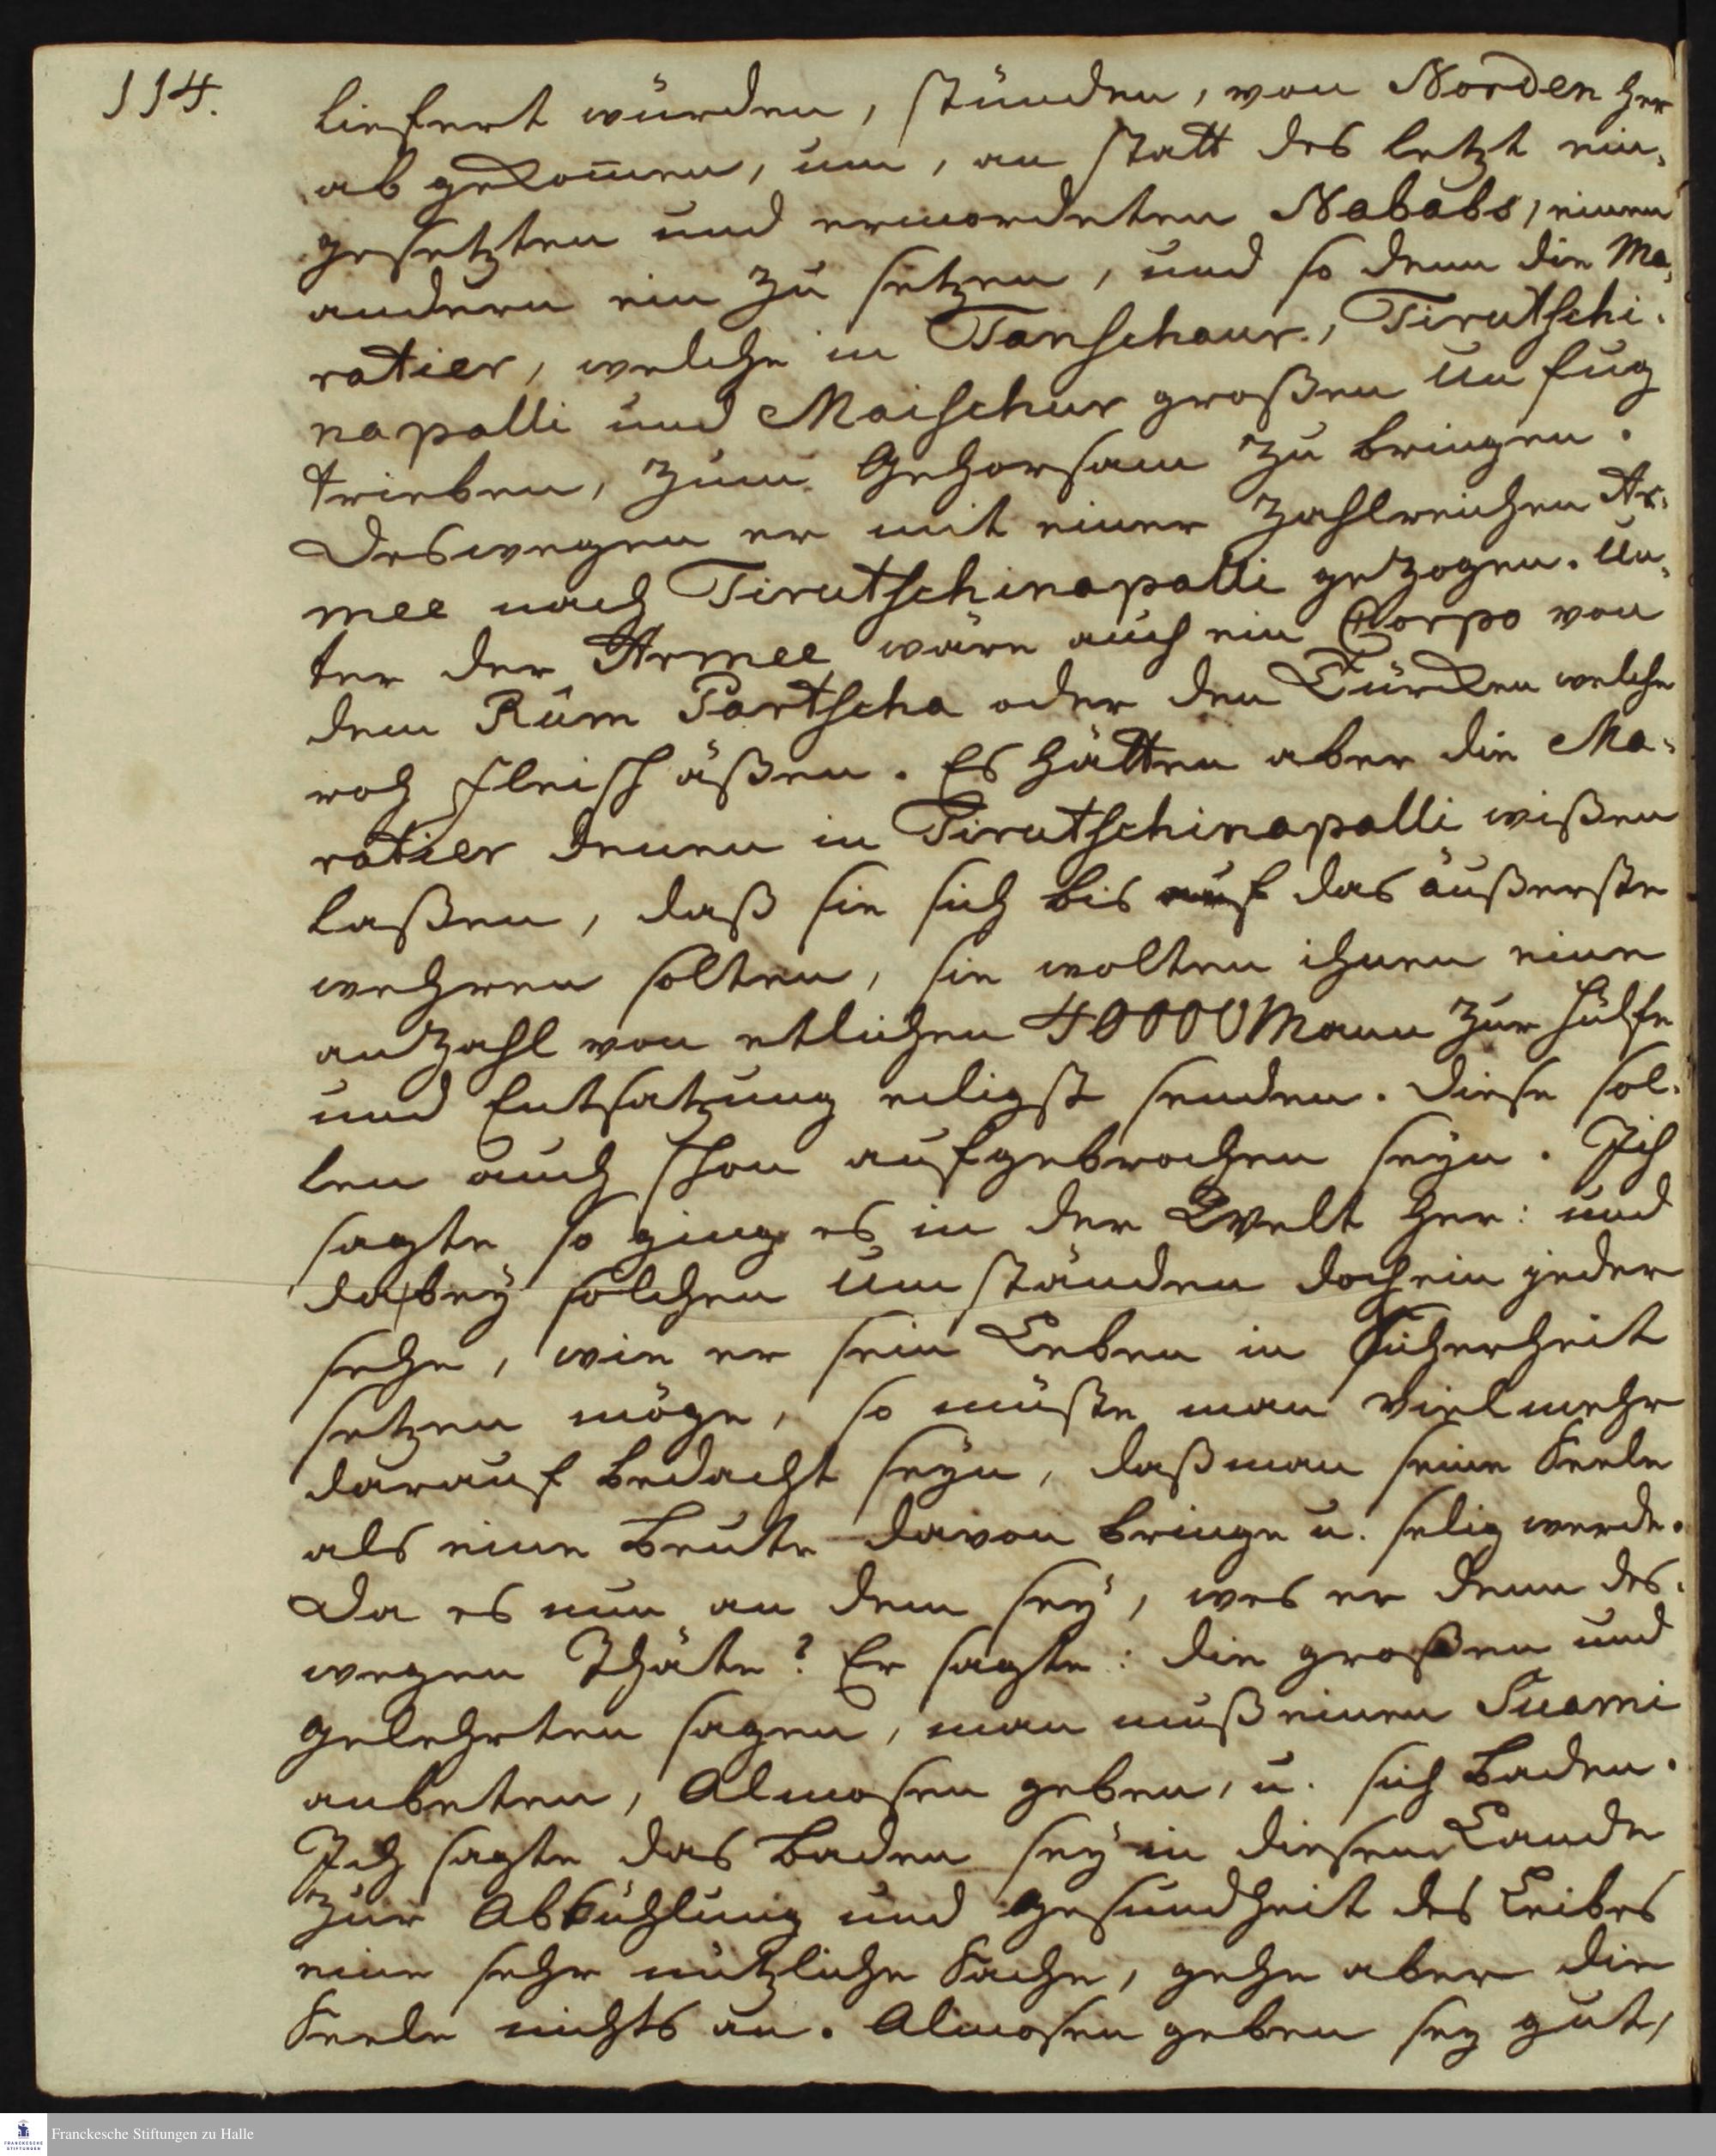 114.
liefert würden, stünden, von Norden her
ab gekom̄en, um, an statt des letzt ein-
gesetzten und ermordeten Nababs, einen
andern ein zu setzen, und so denn die Ma-
ratier, welche in Tanschaur, Tirutschi-
napalli und Maischur großen Unfug
trieben, zum Gehorsam zu bringen.
Deswegen er mit einer zahlreichen Ar-
mee nach Tirutschinapalli gezogen. Un-
ter der Armee wäre auch ein Corpo von
dem Rûm Partscha oder den Türcken welche
roh Fleisch äßen. Es hätten aber die Ma-
ratier denen in Tirutschinapalli wißen
laßen, daß sie sich bis auf das äußerste
wehren solten, sie wolten ihnen eine
anzahl von etlichen 40000 Mann zur Hülfe
und Entsatzung eiligst senden. Diese sol-
len auch schon aufgebrochen seyn. Ich
sagte so ging es in der Welt her: und
da bey solchen Umständen doch ein jeder
sehe, wie er sein Leben in Sicherheit
setzen möge, so müßte man vielmehr
darauf bedacht seyn, daß man seine Seele
als eine Beute davon bringe u. selig werde.
Da es nun an dem sey, was er denn des-
wegen Thäte? Er sagte: die großen und
gelehrten sagen, man muß einen Suami
anbeten, Almosen geben, u. sich baden.
Ich sagte das Baden sey in diesem Lande
zur Abkühlung und gesundheit des Leibes
eine sehr nützliche Sache, gehe aber die
Seele nichts an. Almosen geben sey gut,
Franckesche Stiftungen zu Halle